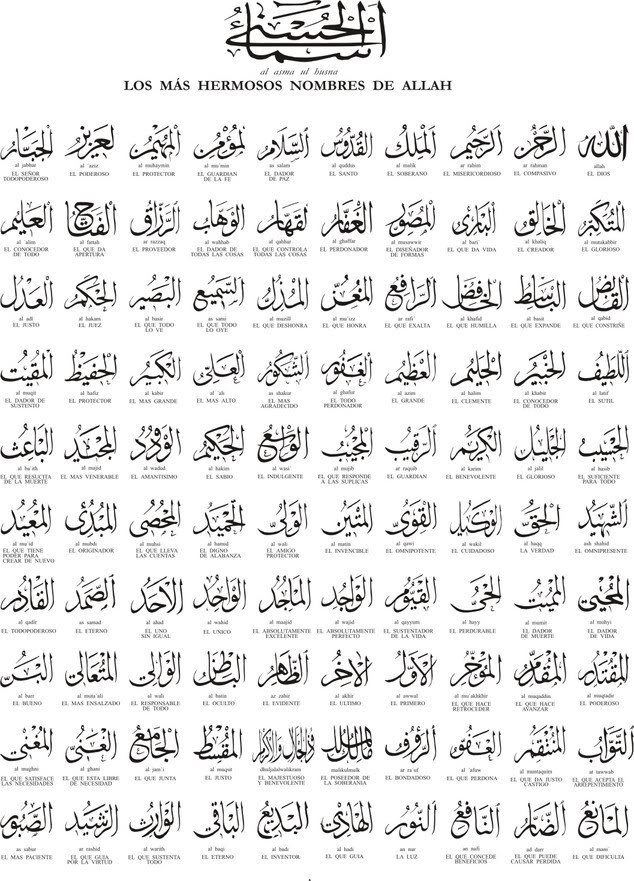 أسماء الحسنى
al asma ul husna
LOS MÁS HERMOSOS NOMBRES DE ALLAH
الله
allah
EL DIOS
الرحمن
ar rahman
EL COMPASIVO
الرحيم
ar rahim
EL MISERICORDIOSO
الملك
al malik
EL SOBERANO
القدوس
al quddus
EL SANTO
السلام
as salam
EL DADOR
DE PAZ
المؤمن
al mu'min
EL GUARDIAN
DE LA FE
المهيمن
al muhaymin
EL PROTECTOR
العزيز
al 'aziz
EL PODEROSO
الجبار
al jabbar
EL SEÑOR
TODOPODEROSO
المتكبر
al mutakabbir
EL GLORIOSO
الخالق
al khaliq
EL CREADOR
البارئ
al bari'
EL QUE DA VIDA
المصور
al musawwir
EL DISEÑADOR
DE FORMAS
الغفار
al ghaffar
EL PERDONADOR
القهار
al qahhar
EL QUE CONTROLA
TODAS LAS COSAS
الوهاب
al wahhab
EL DADOR DE
TODAS LAS COSAS
الرزاق
ar razzaq
EL PROVEEDOR
الفتاح
al fattah
EL QUE DA
APERTURA
العليم
al 'alim
EL CONOCEDOR
DE TODO
القابض
al qabid
EL QUE CONSTRIÑE
الباسط
al basit
EL QUE EXPANDE
الخافض
al khafid
EL QUE HUMILLA
الرافع
ar rafi'
EL QUE EXALTA
المعز
al mu'izz
EL QUE HONRA
المذل
al muzill
EL QUE DESHONRA
السميع
as sami
EL QUE TODO
LO OYE
البصير
al basir
EL QUE TODO
LO VE
الحكم
al hakam
EL JUEZ
العدل
al adl
EL JUSTO
اللطيف
al latif
EL SUTIL
الخبير
al khabir
EL CONOCEDOR
DE TODO
الحليم
al halim
EL CLEMENTE
العظيم
al azim
EL GRANDE
الغفور
al ghafur
EL TODO
PERDONADOR
الشكور
as shakur
EL MAS
AGRADECIDO
العلي
al 'ali
EL MAS ALTO
الكبير
al kabir
EL MAS GRANDE
الحفيظ
al hafiz
EL PROTECTOR
المقيت
al muqit
EL DADOR DE
SUSTENTO
الحسيب
al hasib
EL SUFICIENTE
PARA TODO
الجليل
al jalil
EL GLORIOSO
الكريم
al karim
EL BENEVOLENTE
الرقيب
ar raquib
EL GUARDIAN
المجيب
al mujib
EL QUE RESPONDE
A LAS SUPLICAS
الواسع
al wasi'
EL INDULGENTE
الحكيم
al hakim
EL SABIO
الودود
al wadud
EL AMANTISIMO
المجيد
al majid
EL MAS VENERABLE
الباعث
al ba'ith
EL QUE RESUCITA
DE LA MUERTE
الشهيد
ash shahid
EL OMNIPRESENTE
الحق
al haqq
LA VERDAD
الوكيل
al wakil
EL CUIDADOSO
القوي
al qawi
EL OMNIPOTENTE
المتين
al matin
EL INVENCIBLE
الولي
al wali
EL AMIGO
PROTECTOR
الحميد
al hamid
EL DIGNO
DE ALABANZA
المحصي
al muhsi
EL QUE LLEVA
LAS CUENTAS
المبدئ
al mubdi
EL ORIGINADOR
المعيد
al mu'id
EL QUE TIENE
PODER PARA
CREAR DE NUEVO
المحيي
al muhyi
EL DADOR
DE VIDA
المميت
al mumit
EL DADOR
DE MUERTE
الحي
al hayy
EL PERDURABLE
القيوم
al qayyum
EL SUSTENTADOR
DE LA VIDA
الواجد
al wajid
EL ABSOLUTAMENTE
PERFECTO
الماجد
al maajid
EL ABSOLUTAMENTE
EXCELENTE
الواحد
al wahid
EL UNICO
الاحد
al ahad
EL UNO
SIN IGUAL
الصمد
as samad
EL ETERNO
القادر
al qadir
EL TODOPODEROSO
المقتدر
al muqtadir
EL PODEROSO
المقدم
al muqaddin
EL QUE HACE
AVANZAR
المؤخر
al mu'akhkhir
EL QUE HACE
RETROCEDER
الاول
al awwal
EL PRIMERO
الاخر
al akhir
EL ULTIMO
الظاهر
az zahir
EL EVIDENTE
الباطن
al batin
EL OCULTO
الوالي
al wali
EL RESPONSABLE
DE TODO
المتعالي
al muta'ali
EL MAS ENSALZADO
البر
al barr
EL BUENO
التواب
at tawwab
EL QUE ACEPTA EL
ARREPENTIMIENTO
المنتقم
al muntaquim
EL QUE DA JUSTO
CASTIGO
العفو
al 'afuw
EL QUE PERDONA
الرؤوف
ar ra'uf
EL BONDADOSO
مالك الملك
malikulmulk
EL POSEEDOR DE
LA SOBERANIA
ذو الجلال والاكرام
dhuljalalwalikram
EL MAJESTUOSO
Y BENEVOLENTE
المقسط
al muqsit
EL JUSTO
الجامع
al jam'i
EL QUE JUNTA
الغني
al ghani
EL QUE ESTA LIBRE
DE NECESIDAD
المغني
al mughni
EL QUE SATISFACE
LAS NECESIDADES
المانع
al mani'
EL QUE DIFICULTA
الضار
ad darr
EL QUE PUEDE
CAUSAR PERDIDA
النافع
an nafi
EL QUE CONCEDE
BENEFICIOS
النور
an nur
LA LUZ
الهادي
al hadi
EL QUE GUIA
البديع
al badi
EL INVENTOR
الباقي
al baqi
EL ETERNO
الوارث
al warith
EL QUE SUSTENTA
TODO
الرشيد
ar rashid
EL QUE GUIA
POR LA VIRTUD
الصبور
as sabur
EL MAS PACIENTE